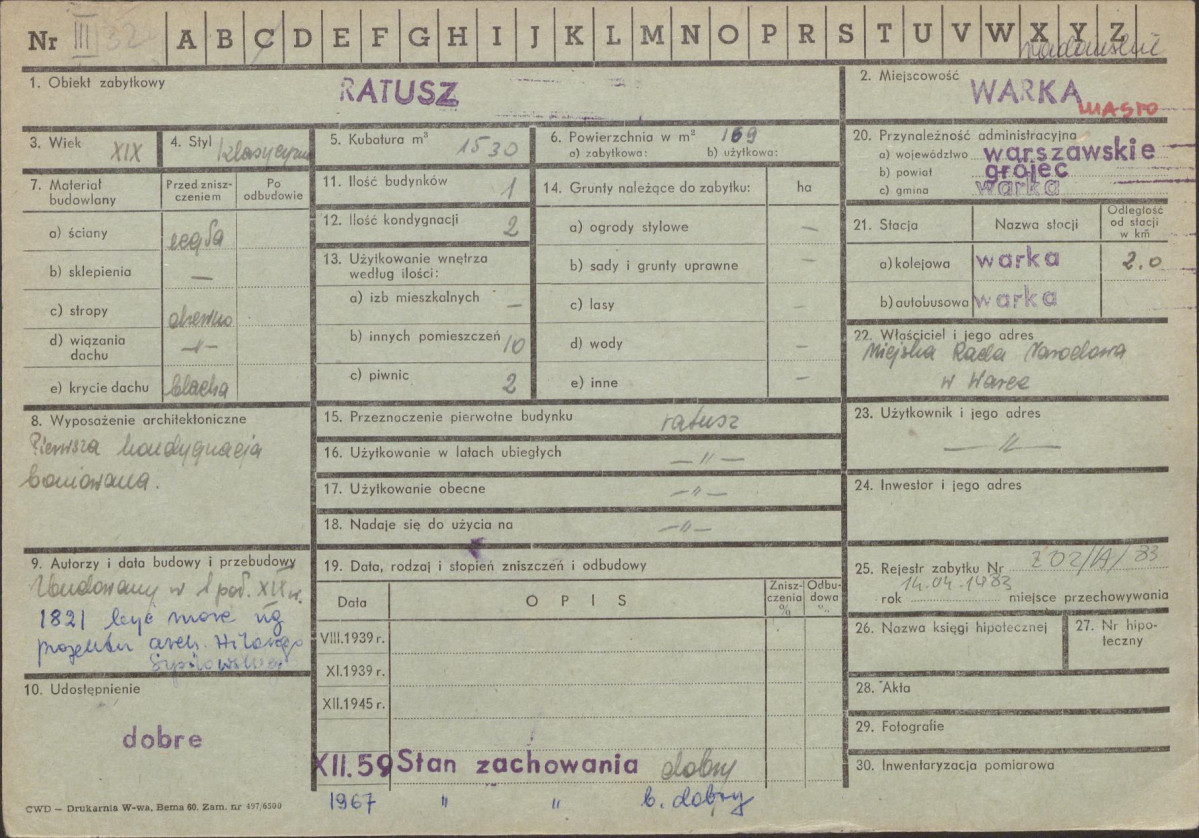 Nr III 32 A B C D E F G H I J K L M N O P R S T U V W X Y Z
radomskie
1. Obiekt zabytkowy RATUSZ
2. Miejscowość WARKA MIASTO
3. Wiek XIX
4. Styl klasycyzm
5. Kubatura m³ 1530
6. Powierzchnia w m² 169
a) zabytkowa: b) użytkowa:
20. Przynależność administracyjna
a) województwo warszawskie
b) powiat grójec
c) gmina warka
7. Materiał budowlany
Przed zniszczeniem
Po odbudowie
a) ściany cegła
b) sklepienia —
c) stropy drewno
d) wiązania dachu —"—
e) krycie dachu blacha
11. Ilość budynków 1
12. Ilość kondygnacji 2
13. Użytkowanie wnętrza według ilości:
a) izb mieszkalnych —
b) innych pomieszczeń 10
c) piwnic 2
14. Grunty należące do zabytku: ha
a) ogrody stylowe —
b) sady i grunty uprawne —
c) lasy
d) wody —
e) inne —
21. Stacja
Nazwa stacji
Odległość od stacji w km
a) kolejowa warka 2.0
b) autobusowa warka
22. Właściciel i jego adres
Miejska Rada Narodowa
w Warce
8. Wyposażenie architektoniczne
Pierwsza kondygnacja
boniowana.
15. Przeznaczenie pierwotne budynku ratusz
16. Użytkowanie w latach ubiegłych —"—
17. Użytkowanie obecne —"—
18. Nadaje się do użycia na —"—
23. Użytkownik i jego adres
—"—
24. Inwestor i jego adres
9. Autorzy i data budowy i przebudowy
Zbudowany w 1 poł. XIX w.
1821 być może wg
projektu arch. Hilarego
Szpilowskiego
19. Data, rodzaj i stopień zniszczeń i odbudowy
Data
OPIS
Zniszczenia %
Odbudowa %
VIII.1939 r.
XI.1939 r.
XII.1945 r.
XII.59 Stan zachowania dobry
1967 " " b. dobry
25. Rejestr zabytku Nr 202/A/83
rok 14.04.1983 miejsce przechowywania
26. Nazwa księgi hipotecznej
27. Nr hipoteczny
28. Akta
29. Fotografie
30. Inwentaryzacja pomiarowa
10. Udostępnienie
dobre
CWD — Drukarnia W-wa, Bema 60. Zam. nr 497/6500